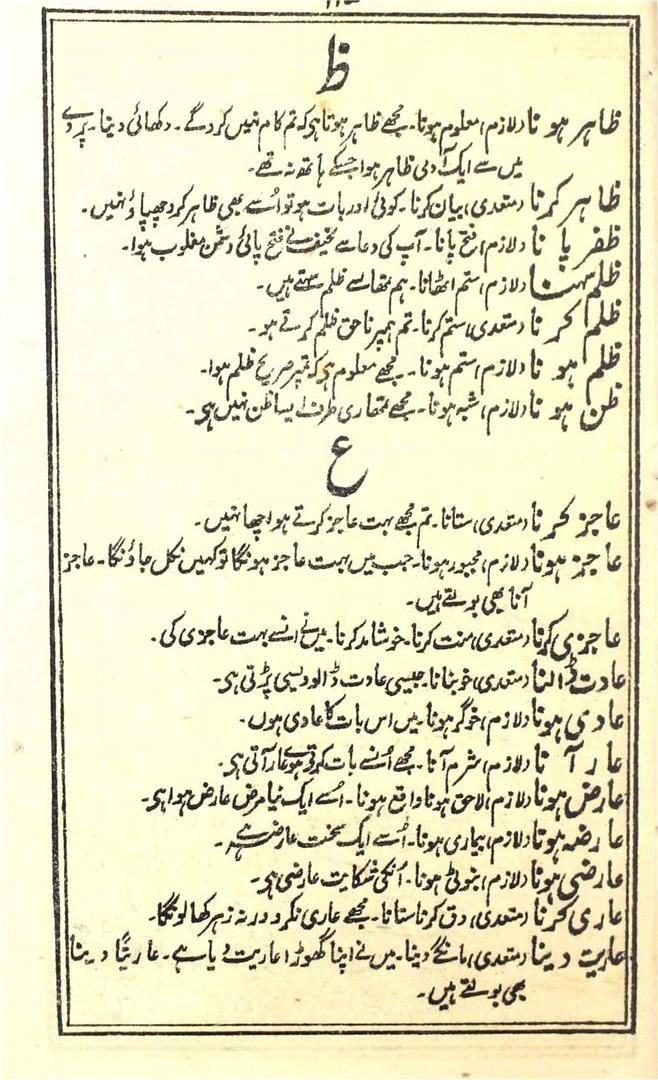 ظ
ظاہر ہونا (لازم) معلوم ہونا۔ مجھے ظاہر ہوتا ہی کہ تم کام نہیں کرو گے۔ دکھائی دینا۔ پردے
میں سے ایک آدمی ظاہر ہوا جسکے ہاتھ نہ تھے۔
ظاہر کرنا (متعدی) بیان کرنا۔ کوئی اور بات ہو تو اُسے بھی ظاہر کرو چھپاؤ نہیں۔
ظفر پانا (لازم) فتح پانا۔ آپ کی دعا سے نحیف نے فتح پائی دشمن مغلوب ہوا۔
ظلم سہنا (لازم) ستم اٹھانا۔ ہم تمھارے ظلم سہتے ہیں۔
ظلم کرنا (متعدی) ستم کرنا۔ تم ہمپر ناحق ظلم کرتے ہو۔
ظلم ہونا (لازم) ستم ہونا۔ مجھے معلوم ہی کہ تمپر صریح ظلم ہوا۔
ظن ہونا (لازم) شبہ ہونا۔ مجھے تمھاری طرف ایسا ظن نہیں ہی۔
ع
عاجز کرنا (متعدی) ستانا۔ تم مجھے بہت عاجز کرتے ہو اچھا نہیں۔
عاجز ہونا (لازم) مجبور ہونا۔ جب میں بہت عاجز ہونگا تو کہیں نکل جاؤنگا۔ عاجز
آنا بھی بولتے ہیں۔
عاجزی کرنا (متعدی) منت کرنا۔ خوشامد کرنا۔ میں نے انسے بہت عاجزی کی۔
عادت ڈالنا (متعدی) خو بنانا۔ جیسی عادت ڈالو ویسی پڑتی ہی۔
عادی ہونا (لازم) خوگر ہونا۔ میں اس بات کا عادی ہوں۔
عار آنا (لازم) شرم آنا۔ مجھے اُنسے بات کرتے ہوے عار آتی ہی۔
عارض ہونا (لازم) لاحق ہونا واقع ہونا۔ اُسے ایک نیا مرض عارض ہوا ہی۔
عارضہ ہونا (لازم) بیماری ہونا۔ اُسے ایک سخت عارضہ ہے۔
عارضی ہونا (لازم) بنوٹی ہونا۔ انکی شکایت عارضی ہی۔
عاری کرنا (متعدی) دق کرنا ستانا۔ مجھے عاری نکرو ورنہ زہر کھا لونگا۔
عاریت دینا (متعدی) مانگے دینا۔ میں نے اپنا گھوڑا عاریت دیا ہے۔ عاریتًا دینا
بھی بولتے ہیں۔